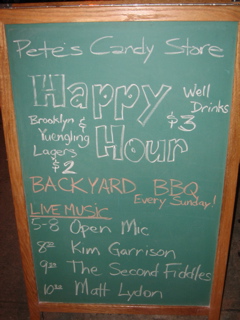 Pete's Candy Store
Happy
Hour
Well
Drinks
$3
Brooklyn &
Yuengling
Lagers
$2
BACKYARD BBQ
Every Sunday!
LIVE MUSIC
5-8 Open Mic
8:00 Kim Garrison
9:00 The Second Fiddles
10:00 Matt Lydon